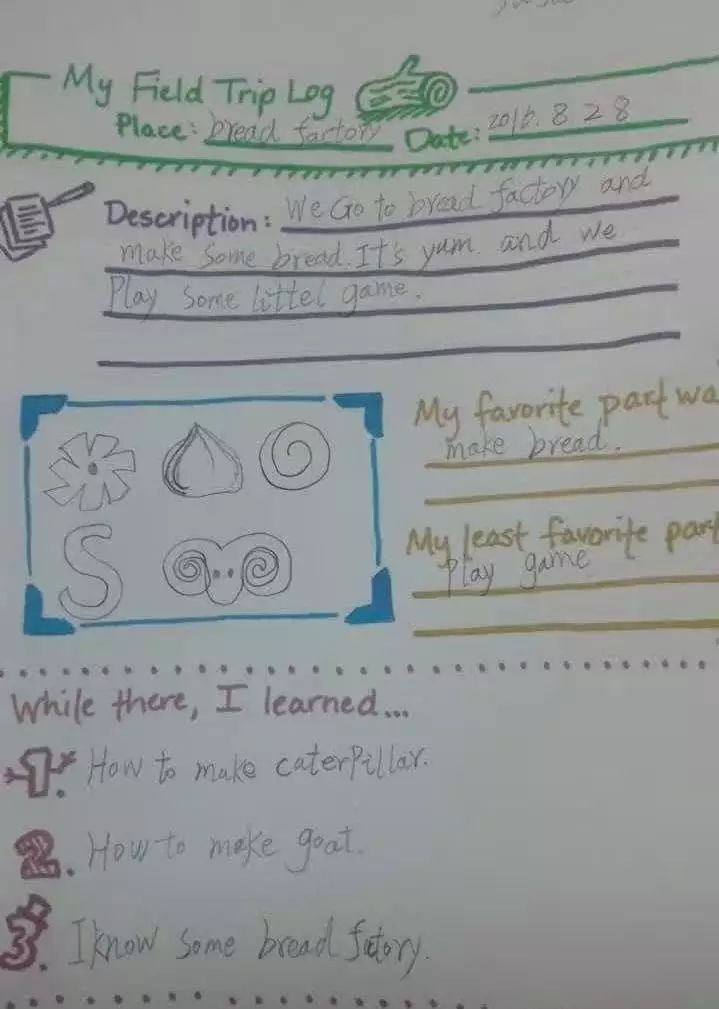 My Field Trip Log
Place: bread factory Date: 2016. 8 28
Description: We Go to bread factory and
make some bread. It's yum. and we
Play some littel game.
My favorite part wa
make bread.
My least favorite part
Play game
S
While there, I learned...
1. How to make caterpillar.
2. How to make goat.
3. I know some bread fatory.